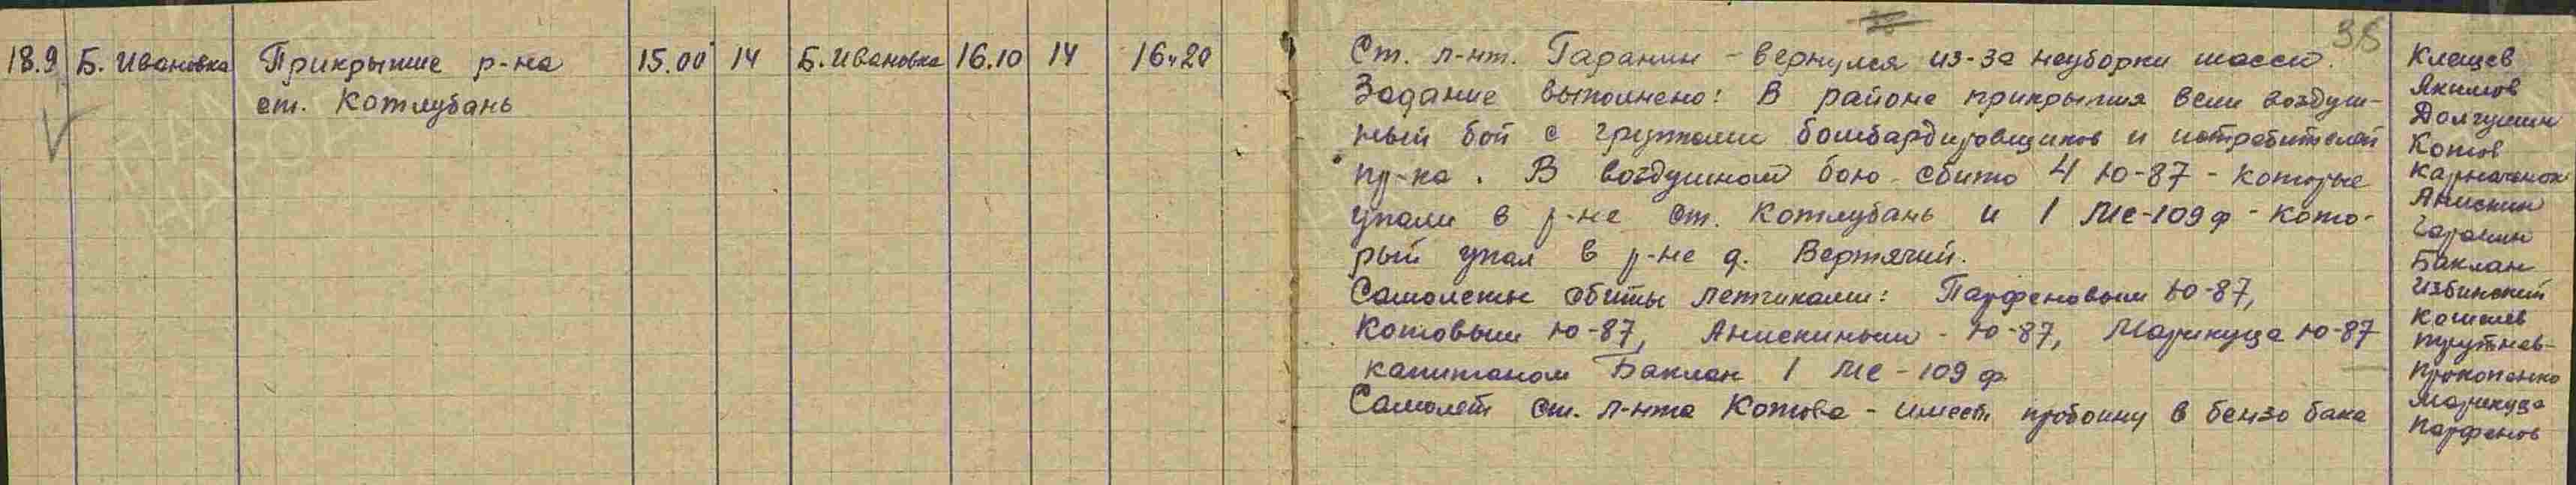 18.9 Б. Ивановка Прикрытие р-на 15.00 14 Б. Ивановка 16.10 14 16ч20
ст. Котлубань
36
Ст. л-нт. Гаранин - вернулся из-за неуборки шасси.
Задание выполнено: В районе прикрытия вели воздуш-
ный бой с группами бомбардировщиков и истребителей
пр-ка. В воздушном бою сбито 4 Ю-87 - которые
упали в р-не ст. Котлубань и 1 МЕ-109ф - кото-
рый упал в р-не д. Вертячий.
Самолеты сбиты летчиками: Парфеновым Ю-87,
Котовым Ю-87, Анискиным - Ю-87, Марикуца Ю-87
капитаном Баклан 1 МЕ-109ф
Самолет ст. л-нта Котова - имеет пробоину в бензо баке
Клещев
Якимов
Долгушин
Котов
Карначенок
Анискин
Гаранин
Баклан
Избинский
Кошелев
Прутнев
Прокопенко
Марикуца
Парфенов